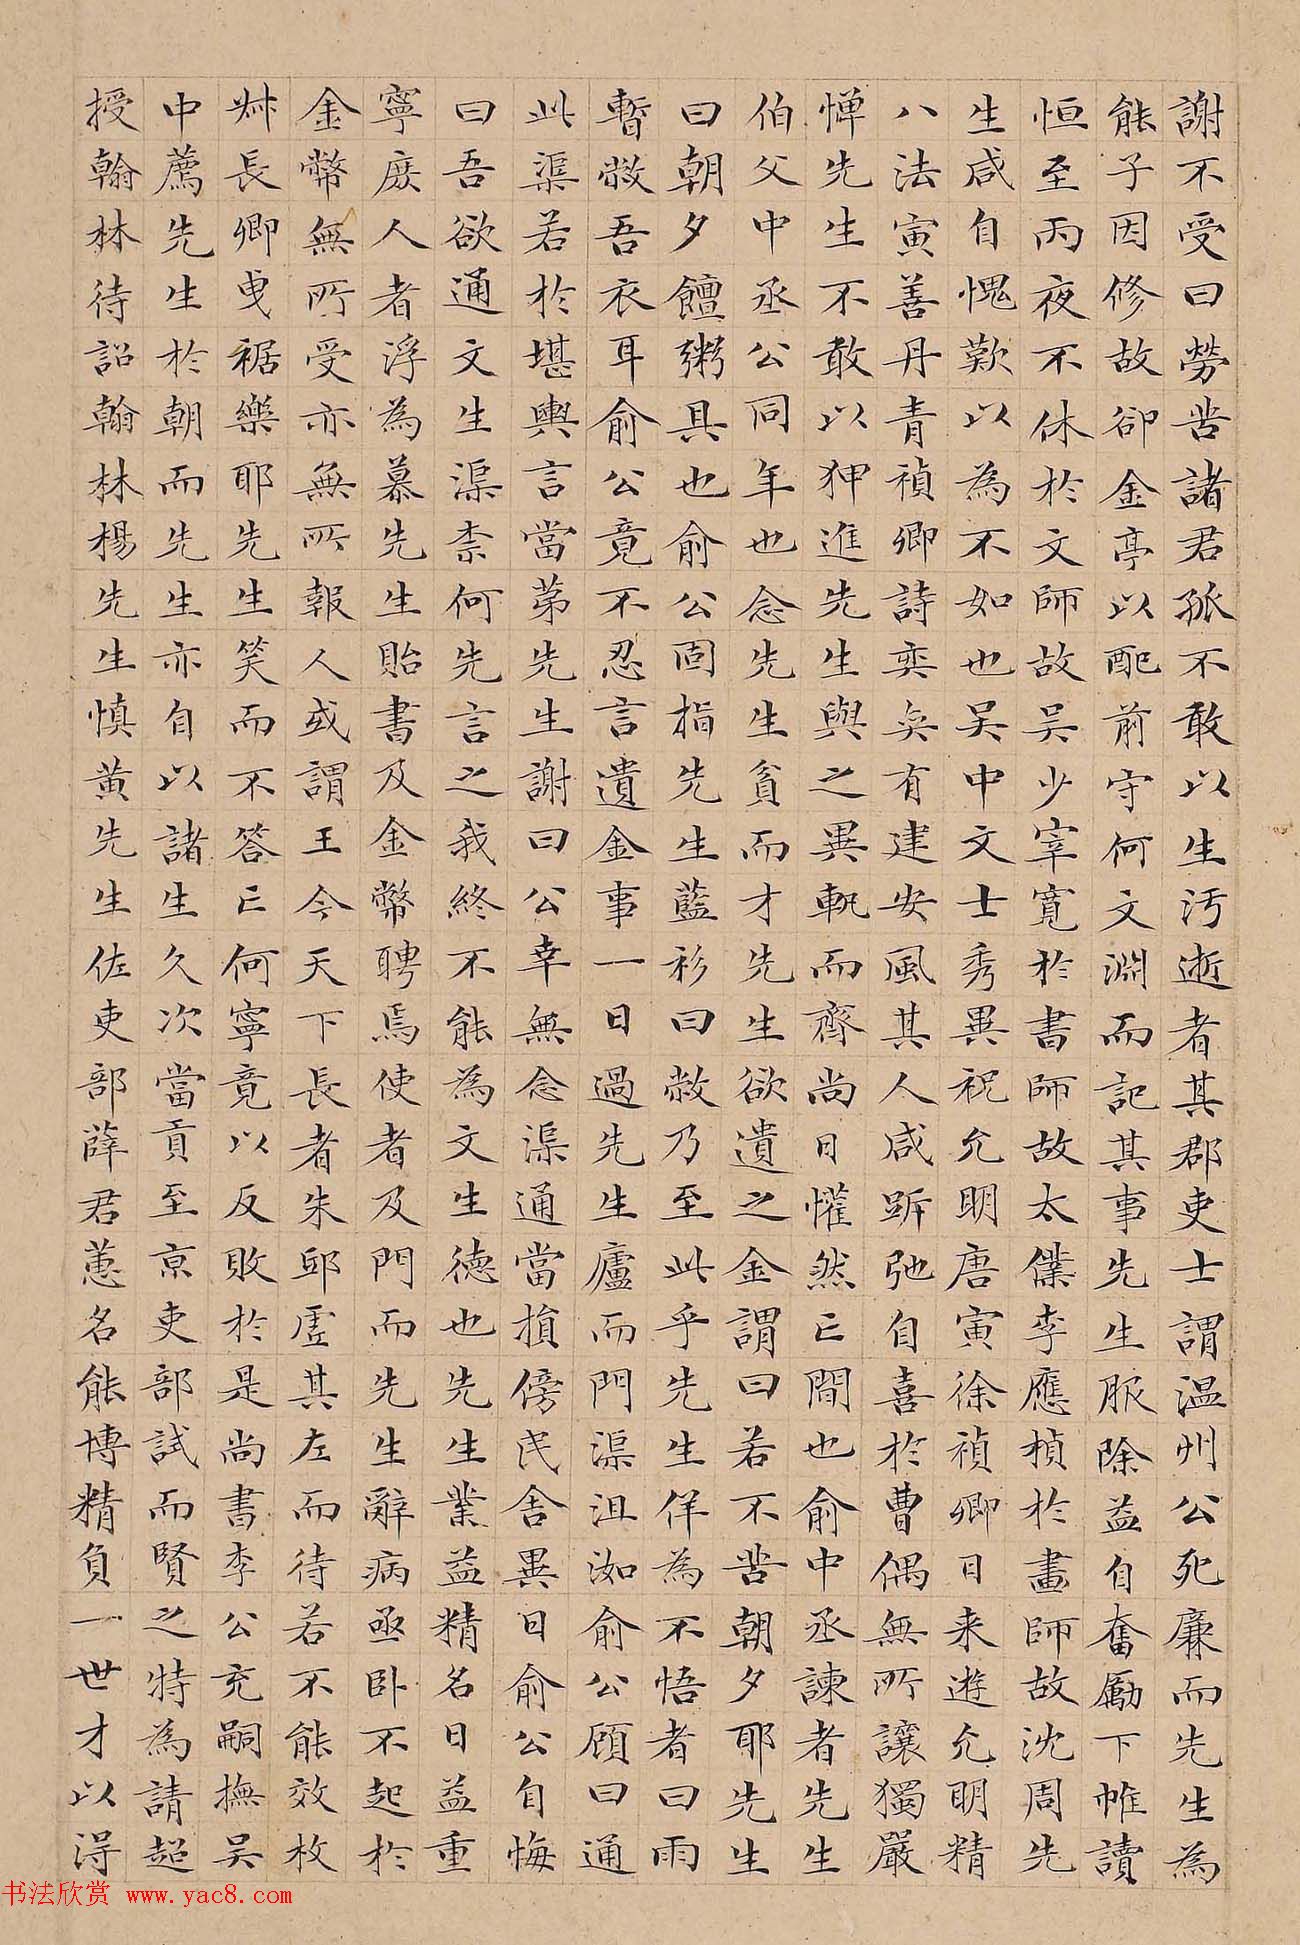 謝不受曰勞苦諸君孤不敢以生汚逝者其郡吏士謂温州公死廉而先生為
能子因修故卻金亭以配前守何文淵而記其事先生服除益自奮勵下帷讀
恒至丙夜不休於文師故吴少宰寬於書師故太僕李應楨於畫師故沈周先
生咸自愧歎以為不如也吴中文士秀異祝允明唐寅徐禎卿日来遊允明精
八法寅善丹青禎卿詩奕奕有建安風其人咸跅弛自喜於曹偶無所讓獨嚴
憚先生不敢以狎進先生與之異軌而齊尚日懽然亡間也俞中丞諫者先生
伯父中丞公同年也念先生貧而才先生欲遺之金謂曰若不苦朝夕耶先生
曰朝夕饘粥具也俞公固指先生藍衫曰敝乃至此乎先生佯為不悟者曰雨
暫敝吾衣耳俞公竟不忍言遺金事一日過先生廬而門渠沮洳俞公顧曰通
此渠若於堪輿言當苐先生謝曰公幸無念渠通當損傍民舍異日俞公自悔
曰吾欲通文生渠柰何先言之我終不能為文生德也先生業益精名日益重
寧庶人者浮為慕先生貽書及金幣聘焉使者及門而先生辭病亟卧不起於
金幣無所受亦無所報人或謂王今天下長者朱邸虚其左而待若不能效枚
叔長卿曳裾樂耶先生笑而不答亡何寧竟以反敗於是尚書李公充嗣撫吴
中薦先生於朝而先生亦自以諸生久次當貢至京吏部試而賢之特為請超
授翰林待詔翰林楊先生慎黄先生佐吏部薛君蕙名能博精負一世才以得
书法欣赏 www.yac8.com